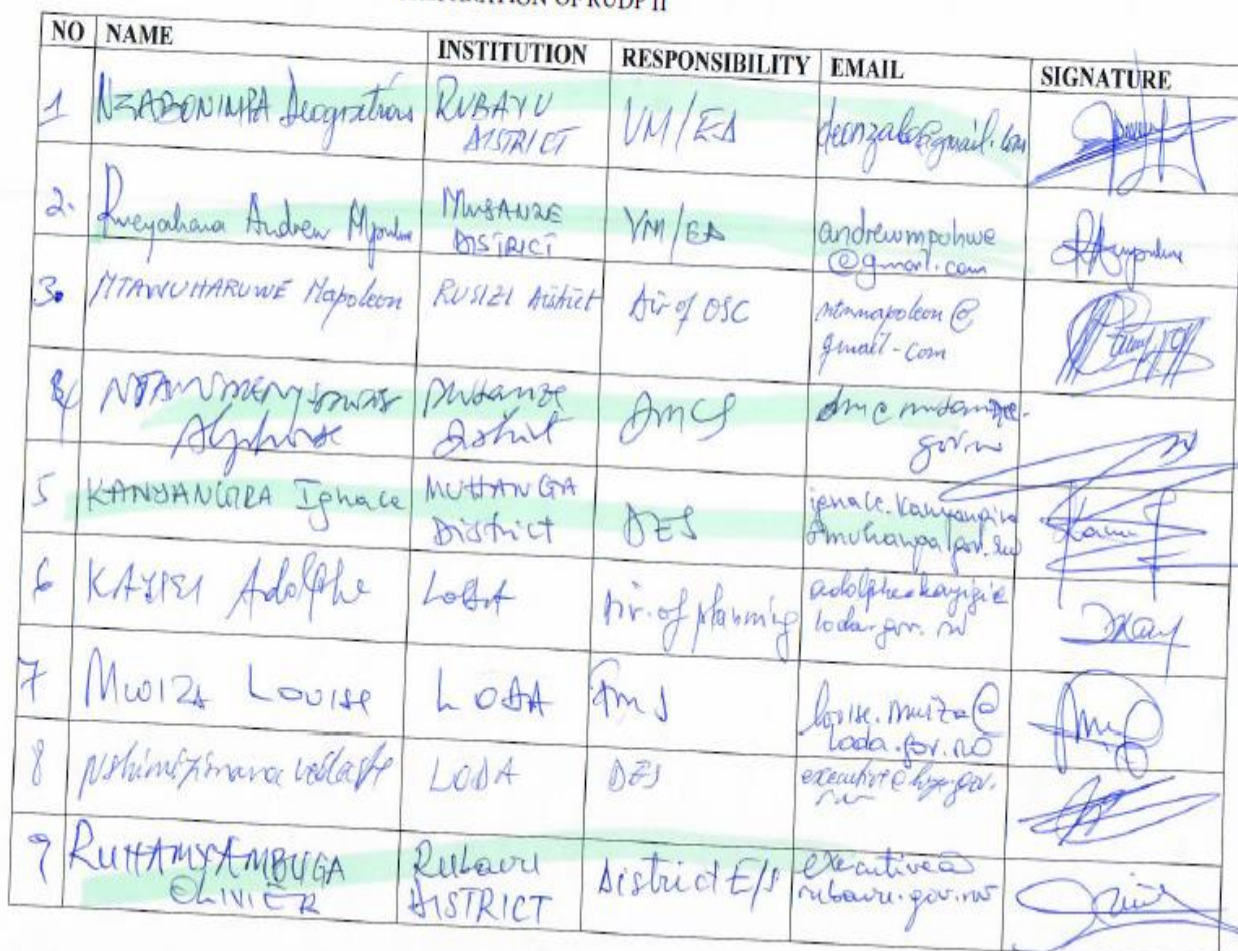 OF RUDP II
NO NAME INSTITUTION RESPONSIBILITY EMAIL SIGNATURE
1 NZABONIMPA Deogratias RUBAVU DISTRICT VM/ED deonzabo@gmail.com
2. Rweyahara Andrew Mpuhwe MUSANZE DISTRICT VM/ED andrewmpuhwe@gmail.com
3. NTAWUHARUWE Napoleon RUSIZI District Dir of OSC @gmail.com
4 Alphonse Musanze DMCS gov.rw
5 KANYANGIRA Ignace MUHANGA District DES ignace.kanyangira@muhanga.gov.rw
6 KAYISI Adolphe LODA Dir. of planning loda.gov.rw
7 MWIZA LOUISE LODA louise.mwiza@loda.gov.rw
8 Nshimiyimana Vedaste LODA DES
9 RUHAMYAMBUGA OLIVIER Rubavu DISTRICT District E/S executive@rubavu.gov.rw